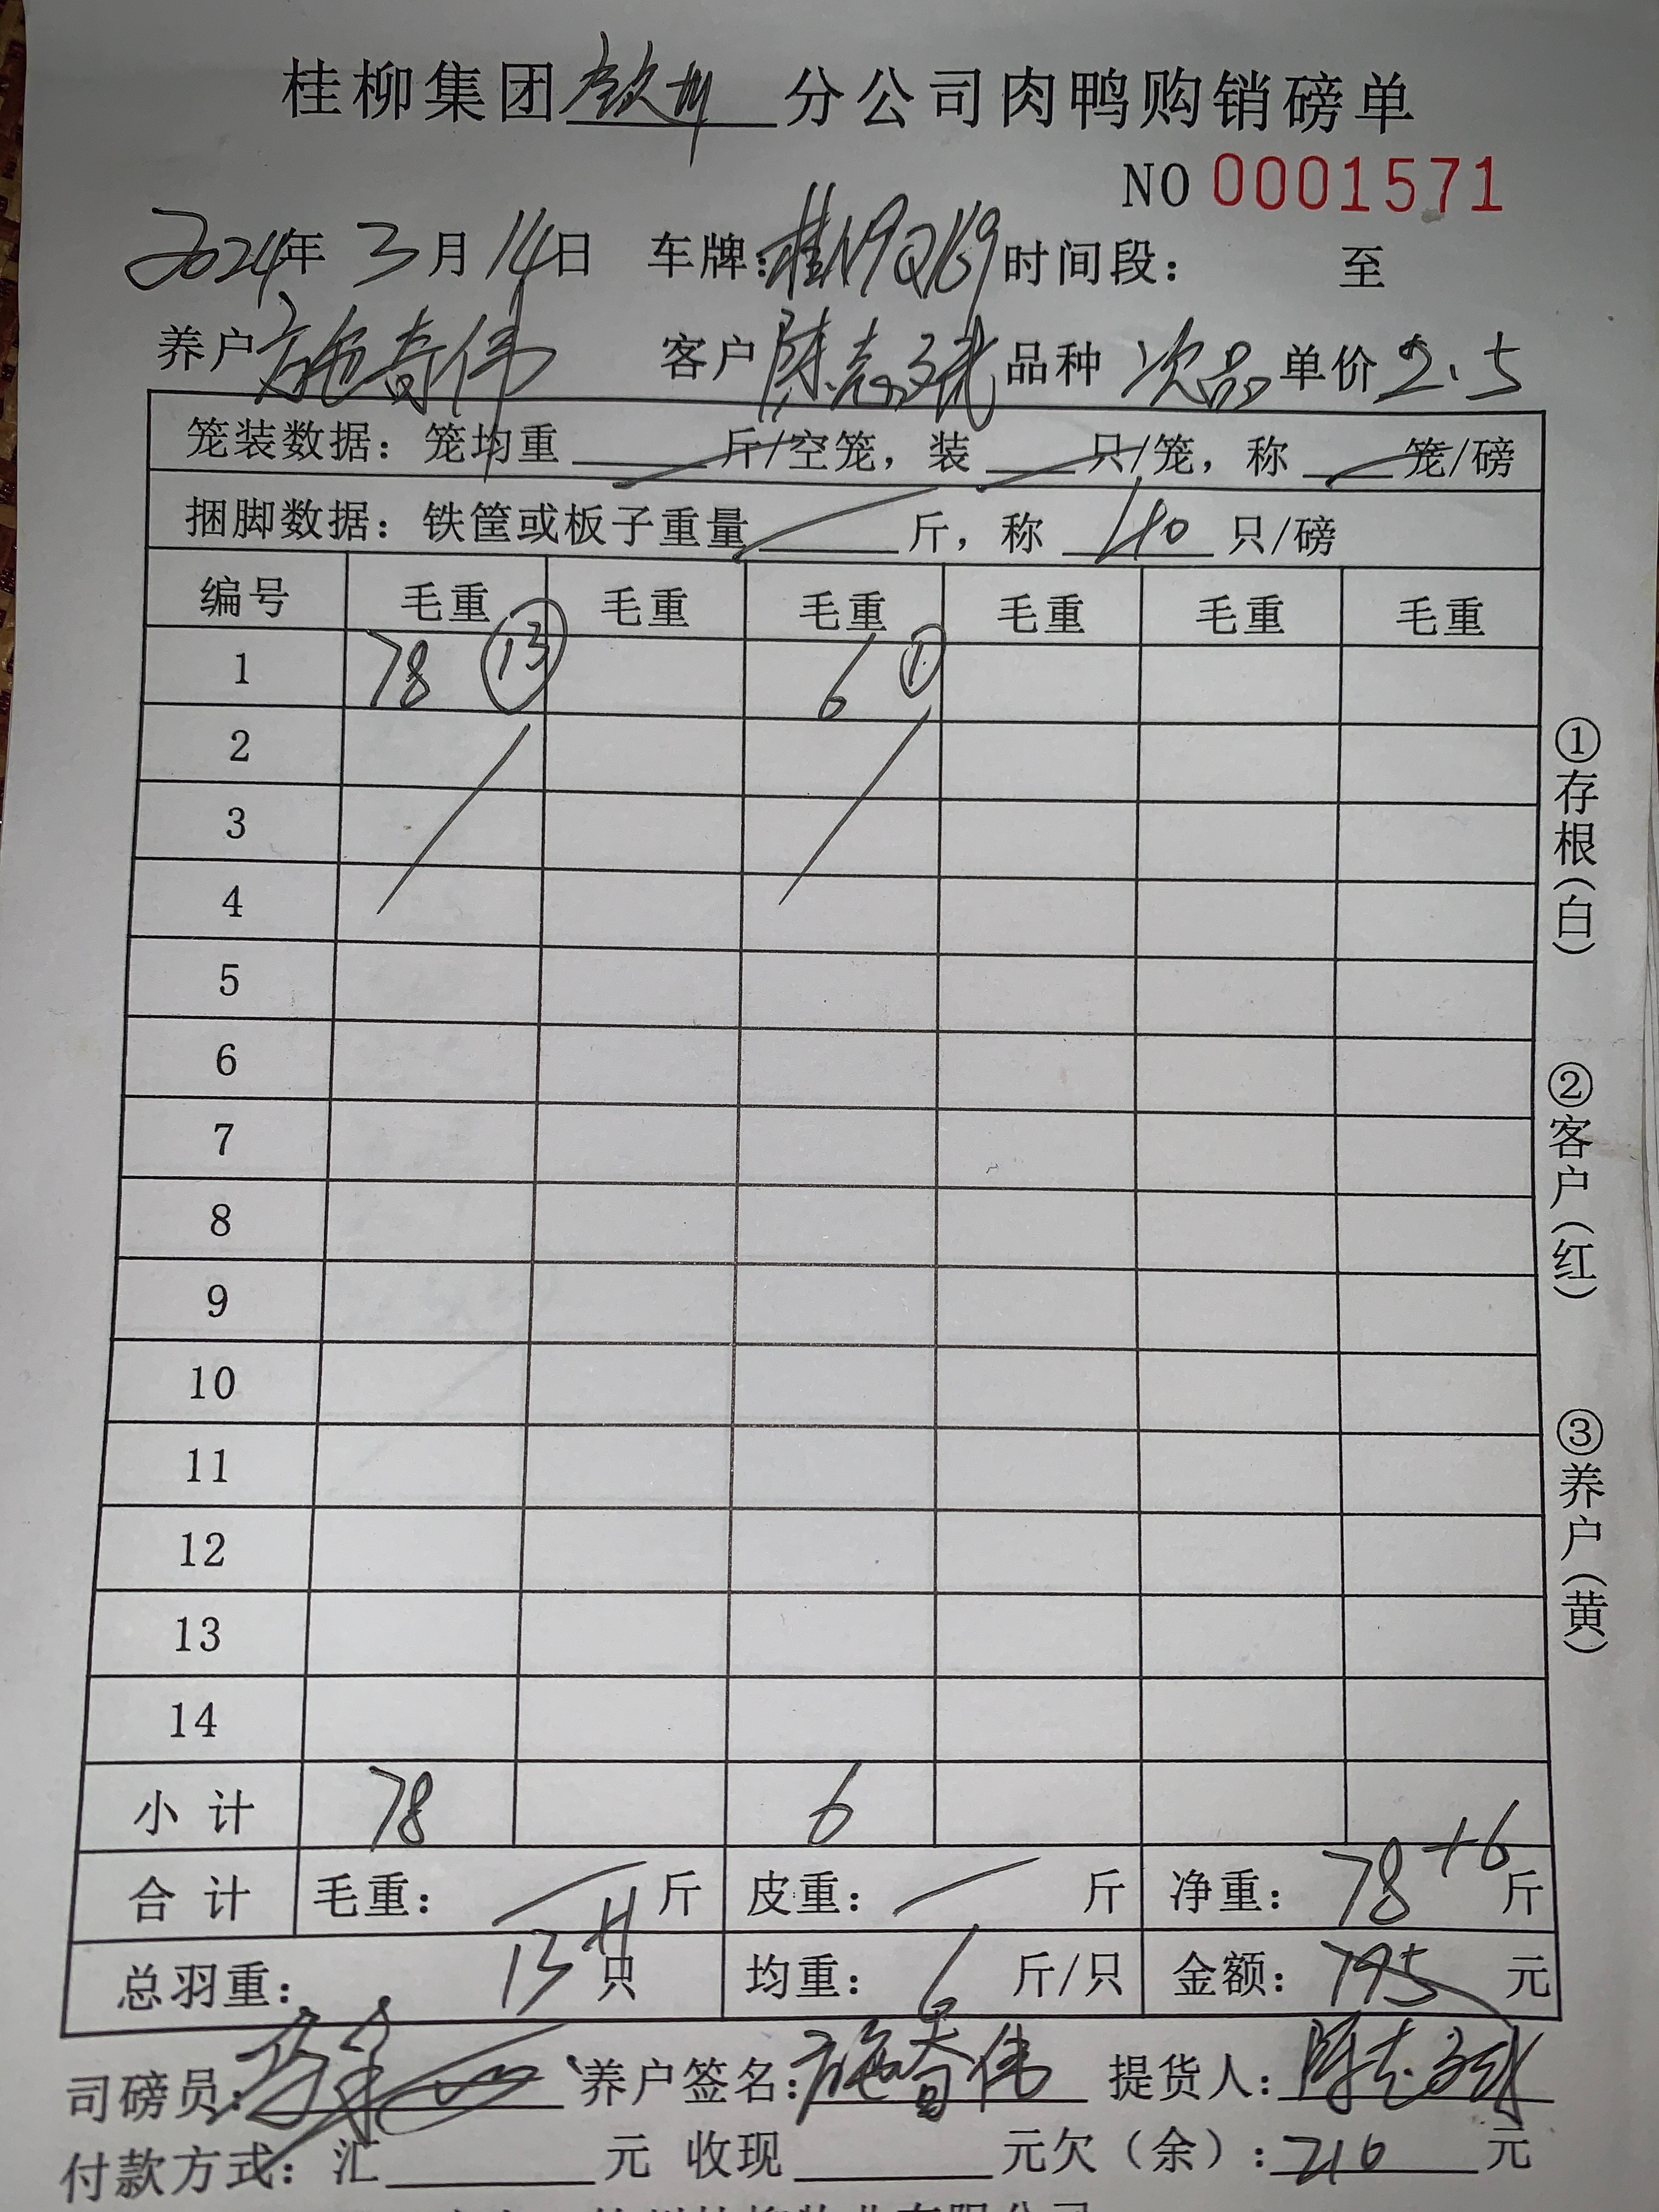 桂柳集团钦州分公司肉鸭购销磅单
NO 0001571
2024年 3月 14日 车牌:桂N9Q169 时间段: 至
养户 施奇伟 客户 陈志 品种 次品 单价 2.5
笼装数据: 笼均重 斤/空笼, 装 只/笼, 称 笼/磅
捆脚数据: 铁筐或板子重量 斤, 称 40 只/磅
编号 毛重 毛重 毛重 毛重 毛重 毛重
1 78 ⑬ 6 ①
2
3
4
5
6
7
8
9
10
11
12
13
14
小计 78 6
合计 毛重: 斤 皮重: 斤 净重: 78+6 斤
总羽重: 13+1 只 均重: 6 斤/只 金额: 195 元
司磅员: 养户签名: 施奇伟 提货人: 陈志
付款方式: 汇 元 收现 元 欠(余): 210 元
①存根(白)
②客户(红)
③养户(黄)